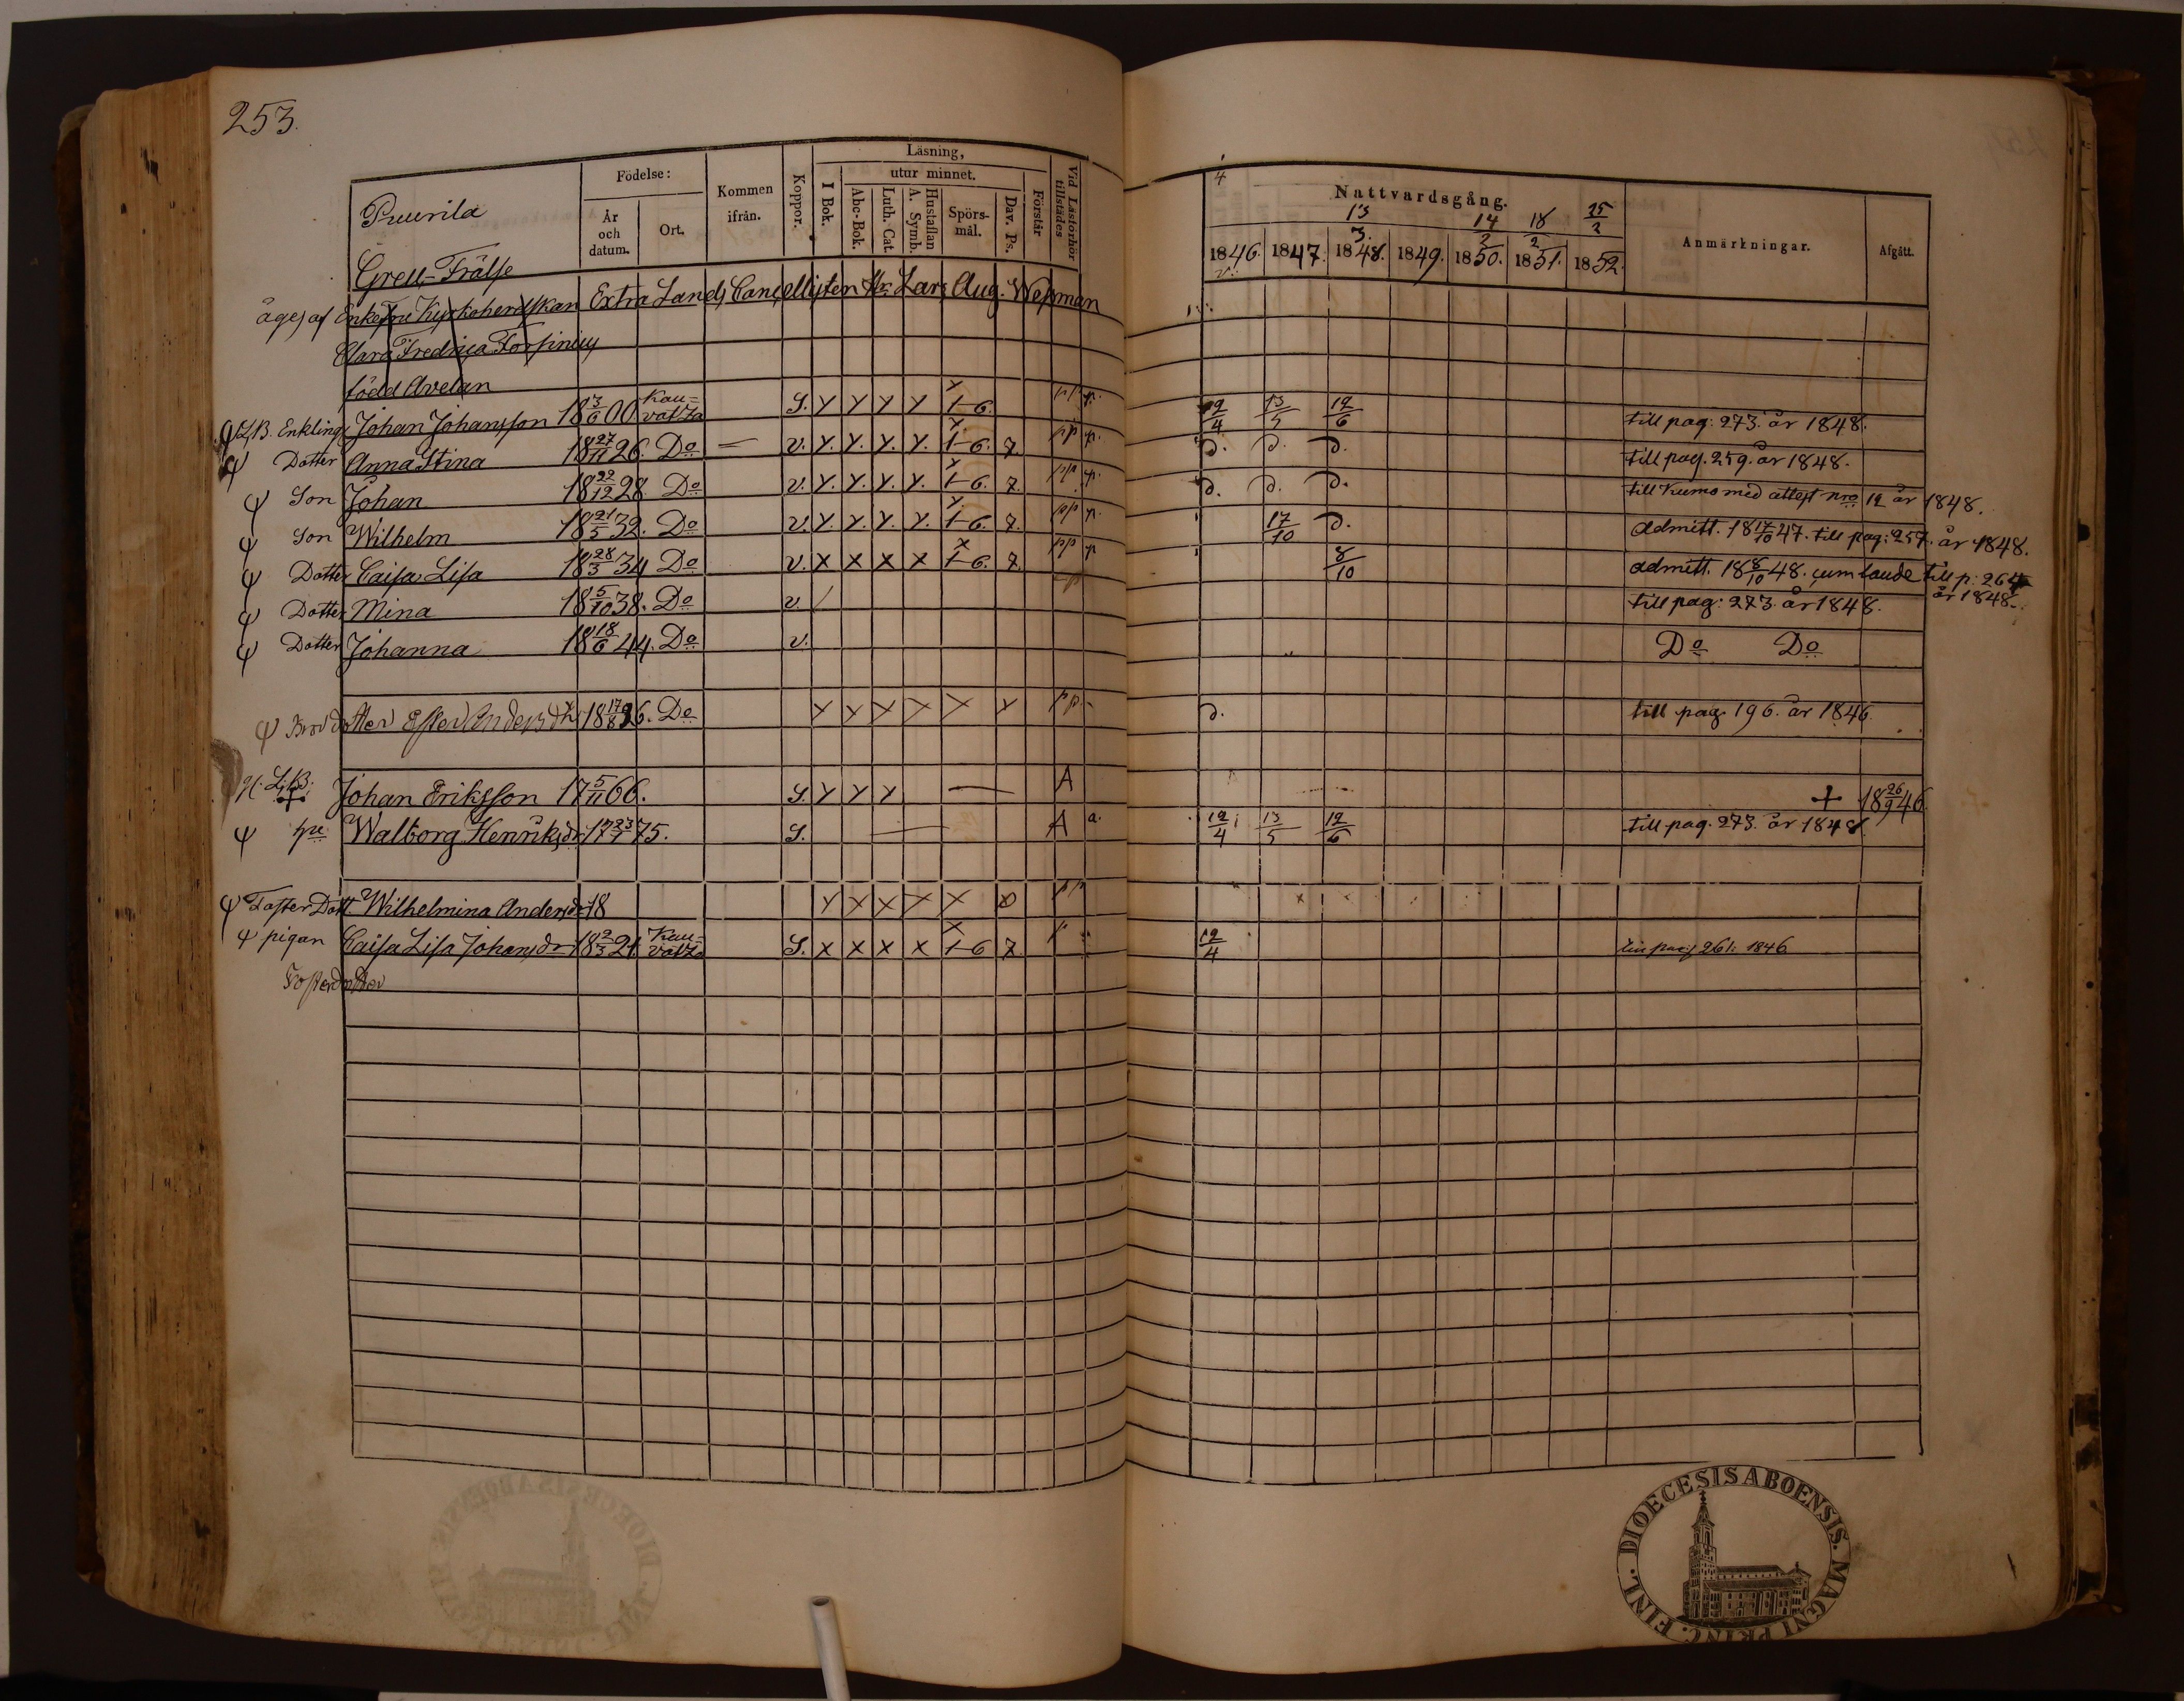 253.
Puurila
Grell-Frälse
Födelse:
År och datum.
Ort.
Kommen ifrån.
Koppor.
Läsning,
I Bok.
utur minnet.
Abc-Bok.
Luth. Cat.
Hustaflan A. Symb.
Spörsmål.
Dav. Ps.
Förstår
Vid Läsförhör tillstädes
Nattvardsgång.
4 13 3. 14 2 18 2 25 2
1846. 1847. 1848. 1849. 1850. 1851. 1852.
Anmärkningar.
Afgått.
äges af Enkefru Kyrkoherdskan Extra Lands Cancellisten Hr Lars Aug. Wepman
Clara Fredrica Forsinius
född Avelan
Enkling Johan Johansson 18 3/6 00 Kauvatza S. Y Y Y Y 1-6. pp p. 12/4 13/5 12/6 till pag: 273. år 1848.
ψ Dotter Anna Stina 18 27/11 26. Do — v. Y. Y. Y. Y. 1-6. 7. pp p. D. D. D. till pag. 259. år 1848.
ψ Son Johan 18 22/12 28 Do v. Y. Y. Y. Y. 1-6. 7. pp p. D. D. D. till Kumo med attest nro 12 år 1848.
ψ Son Wilhelm 18 21/5 32. Do v. Y. Y. Y. Y. 1-6. 7. pp p. 17/10 D. admitt. 18 17/10 47. till pag: 257. år 1848.
ψ Dotter Caisa Lisa 18 28/3 34 Do v. X X X X 1-6. 7. pp p 8/10 admitt. 18 8/10 48. cum laude till p: 264 år 1848.
ψ Dotter Mina 18 5/10 38. Do v. / till pag: 273. år 1848.
ψ Dotter Johanna 18 18/6 44. Do v. Do Do
ψ Brordotter Ester Andersdr 18 17/8 26. Do Y Y X X X Y pp. D. till pag 196. år 1846.
Johan Eriksson 17 5/11 66. S. Y Y Y — A + 18 26/9 46
ψ Walborg Henriksdr 17 23/7 75. S. — A a. 12/4 13/5 12/6 till pag. 273. år 1848
ψ Foster Dott. Wilhelmina Andersdr 18 Y X X X X pp
ψ pigan Caisa Lisa Johansdr 18 2/3 21. Kauvatza S. X X X X 1-6 7. p 12/4 261: 1846
Fosterdotter
DIOECESIS ABOENSIS. MAGNI PRINC. FINL.